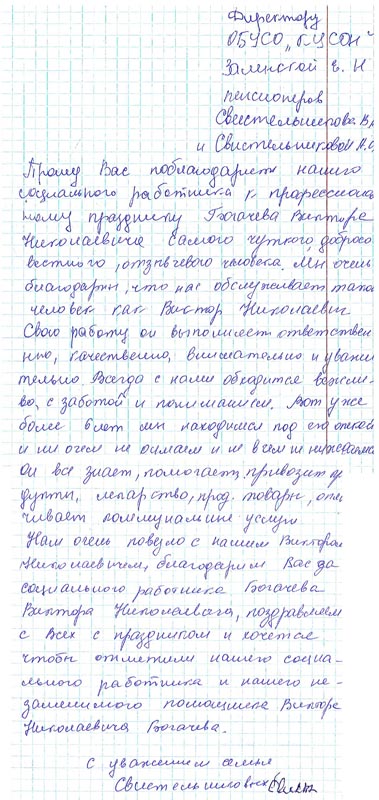 Директору
ОБУСО „БЦСОН"
Заленской г. Н
пенсионеров
Свистельникова В.
и Свистельниковой Н.
Прошу Вас поблагодарить нашего
социального работника к професcиональ
ному празднику Богачева Виктора
Николаевича самого чуткого, добросо
вестного, отзывчевого человека. Мы очень
благодарны, что нас обслуживает такой
человек как Виктор Николаевич.
Свою работу он выполняет ответствен
нно, качественно, внимательно и уважи
тельно. Всегда с нами обходится вежли-
во, с заботой и пониманием. Вот уже
более 8 лет мы находимся под его опекой
и ни очем не думаем и не в чем не нуждаемся
он все знает, помогает, привозит пр
дукты, лекарство, прод. товары, опла
чивает коммунальные услуги
Нам очень повезло с нашим Виктором
Николаевичем, благодарим Вас за
социального работника Богачева
Виктора Николаевича, поздравляем
с Всех с праздником и хочется
чтобы отметили нашего социа-
льного работника и нашего не-
заменимого помощника Виктора
Николаевича Богачева.
с уважением семья
Свистельниковых